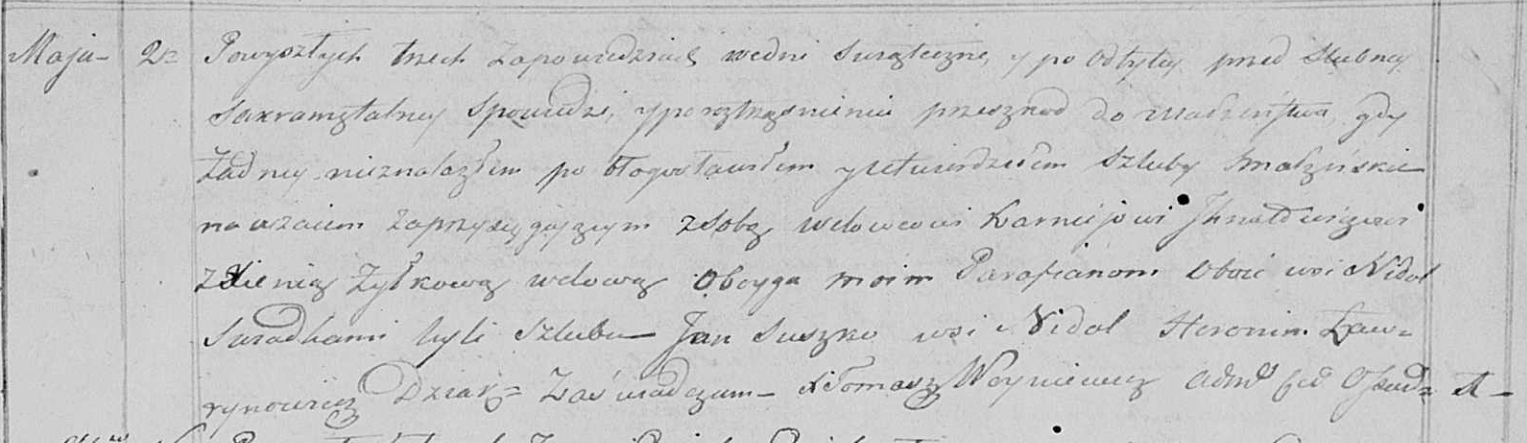 Maja 2 Powyszłych trzech Zapowiedziach wedni Swiąteczne y po odbytey przed Slubney
Sakramętalney Spowiedzi, y po roztrząsnieniu przeszkod do Małżeństwa, gdy
Żadney nieznalazłem po błogosławiłem y utwierdziłem Szluby Małżeńskie
na wzaiem Zaprzysięgaiącym z sobą wdowcowi Karniejowi Ihnatowiczowi
Z Żyłkową wdową Oboyga moim Parafianom Oboie wsi Nidal
Swiadkami byli Szlubu Jan Suszko wsi Nidal Heronim Ław-
rynowicz Dziak Zaświadczam X Tomasz Woyniewicz